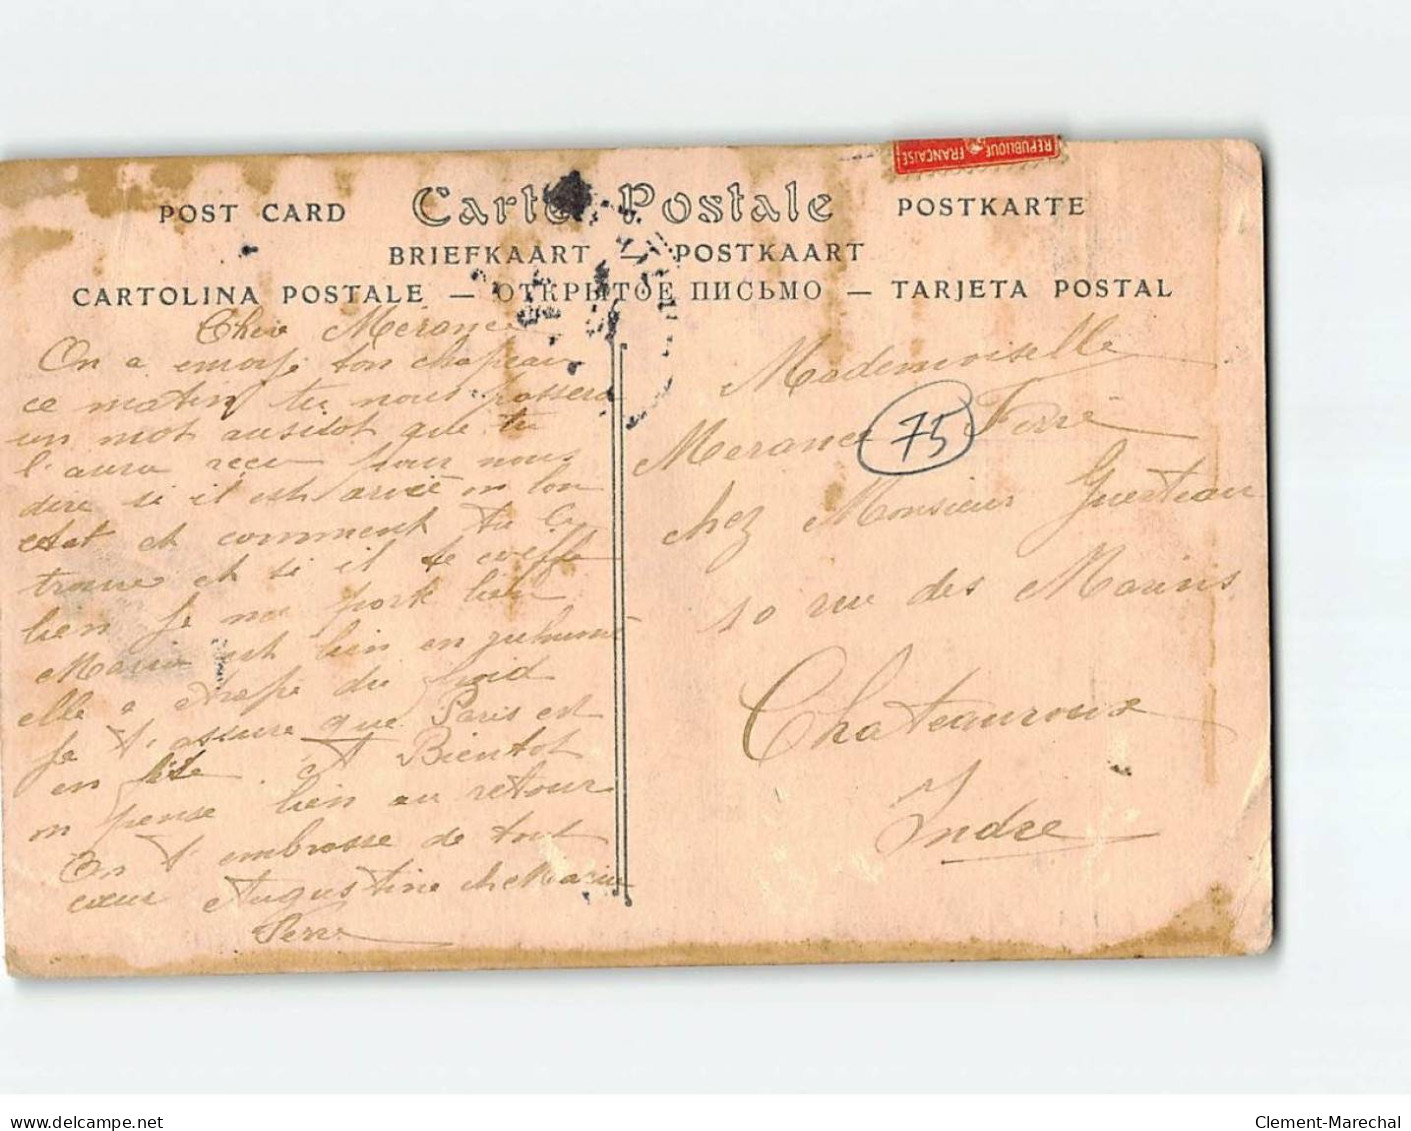 REPUBLIQUE FRANCAISE
POST CARD Carte Postale POSTKARTE
BRIEFKAART — POSTKAART
CARTOLINA POSTALE — ОТКРЫТОЕ ПИСЬМО — TARJETA POSTAL
Cher Merance
On a ton chapeau
ce matin tu nous
un mot ausitot que tu
l'aura recu pour nous
dire si il est arivé en bon
etat et comment tu le
trouve et si il te coeffe
bien je me porte bien
Maria est bien enruhumé
elle a atrapé du froid
je t'assure que Paris est
en fete. a Bientot
on pense bien au retour
On t'embrasse de tout
coeur Augustine et Maria
Ferre
Mademoiselle
Merance Ferré
75
chez Monsieur
10 rue des Marins
Chateauroux
Indre
www.delcampe.net
Clement-Marechal